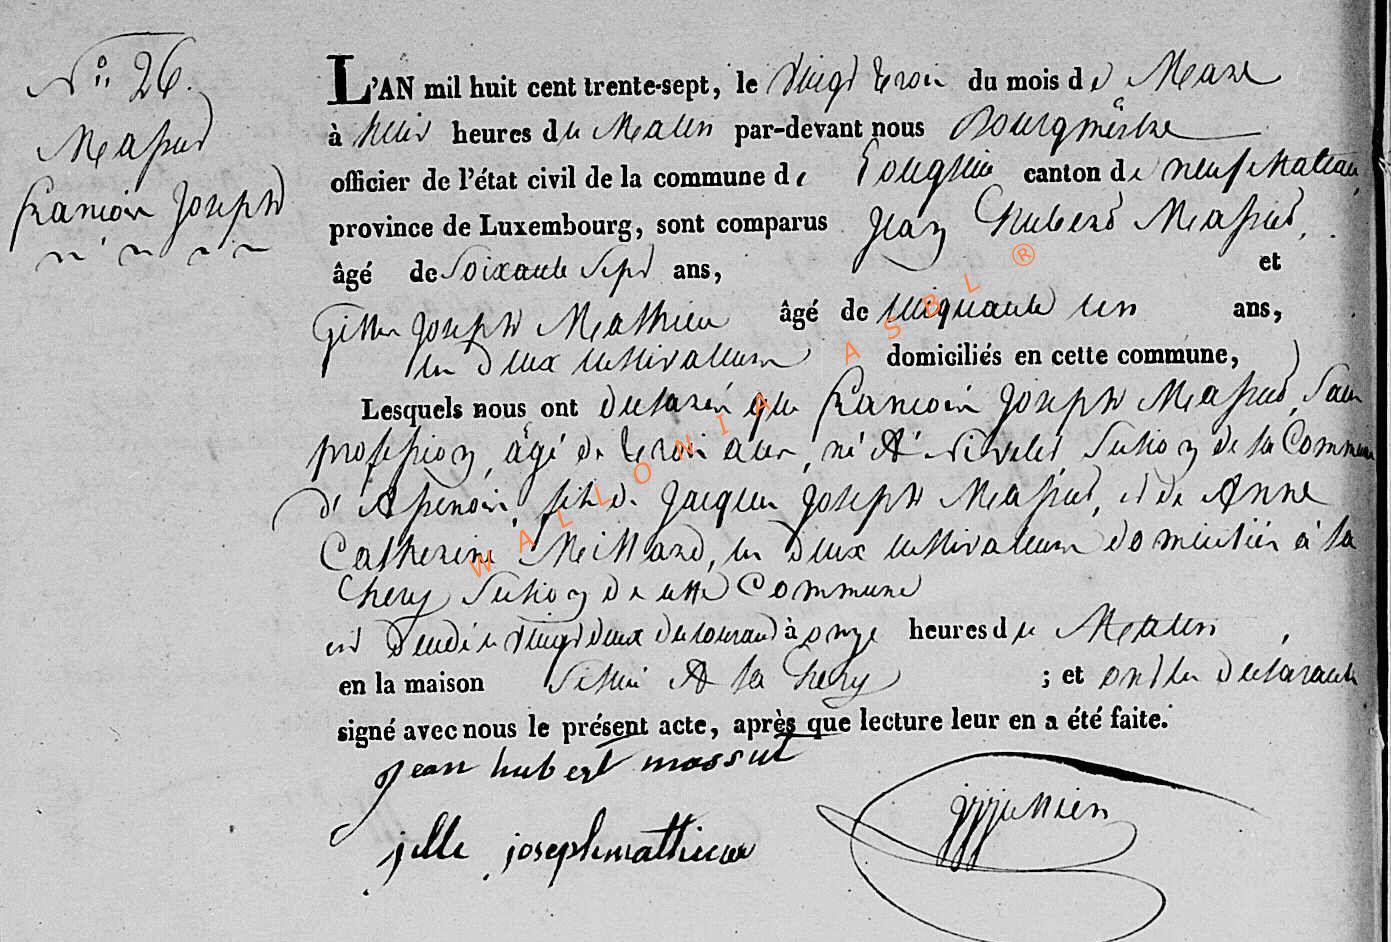 N° 26.
Massut
François Joseph
L'AN mil huit cent trente-sept, le Vingt trois du mois de Mars
à huit heures du Matin par-devant nous Bourgmestre
officier de l'état civil de la commune de canton de neufchateau,
province de Luxembourg, sont comparus Jean hubert Massut,
âgé de Soixante Sept ans, et
Gilles Joseph Mathieu âgé de cinquante un ans,
les deux cultivateurs domiciliés en cette commune,
Lesquels nous ont declarés que François Joseph Massut, Sans
profession, âgé de trois ans, né A Nivelet Section de la Commune
d'Assenois, fils de Jacques Joseph Massut, et de Anne
Catherine Millard, les deux cultivateurs domiciliés à la
Chery Section de cette Commune
est décédé le Vingt deux du courant à onze heures du Matin,
en la maison A la Chery ; et ont les declarants
signé avec nous le présent acte, après que lecture leur en a été faite.
jean hubert massut
jille josephmathieu
WALLONIA ASBL ®